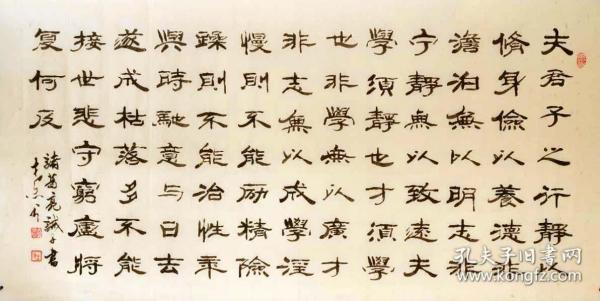 夫君子之行靜以
脩身儉以養德非
澹泊無以明志非
宁靜無以致遠夫
學須靜也才須學
也非學無以廣才
非志無以成學淫
慢則不能励精險
躁則不能治性年
與時馳意与日去
遂成枯落多不能
接世悲守窮廬將
复何及
諸葛亮誡子書
孔夫子旧书网